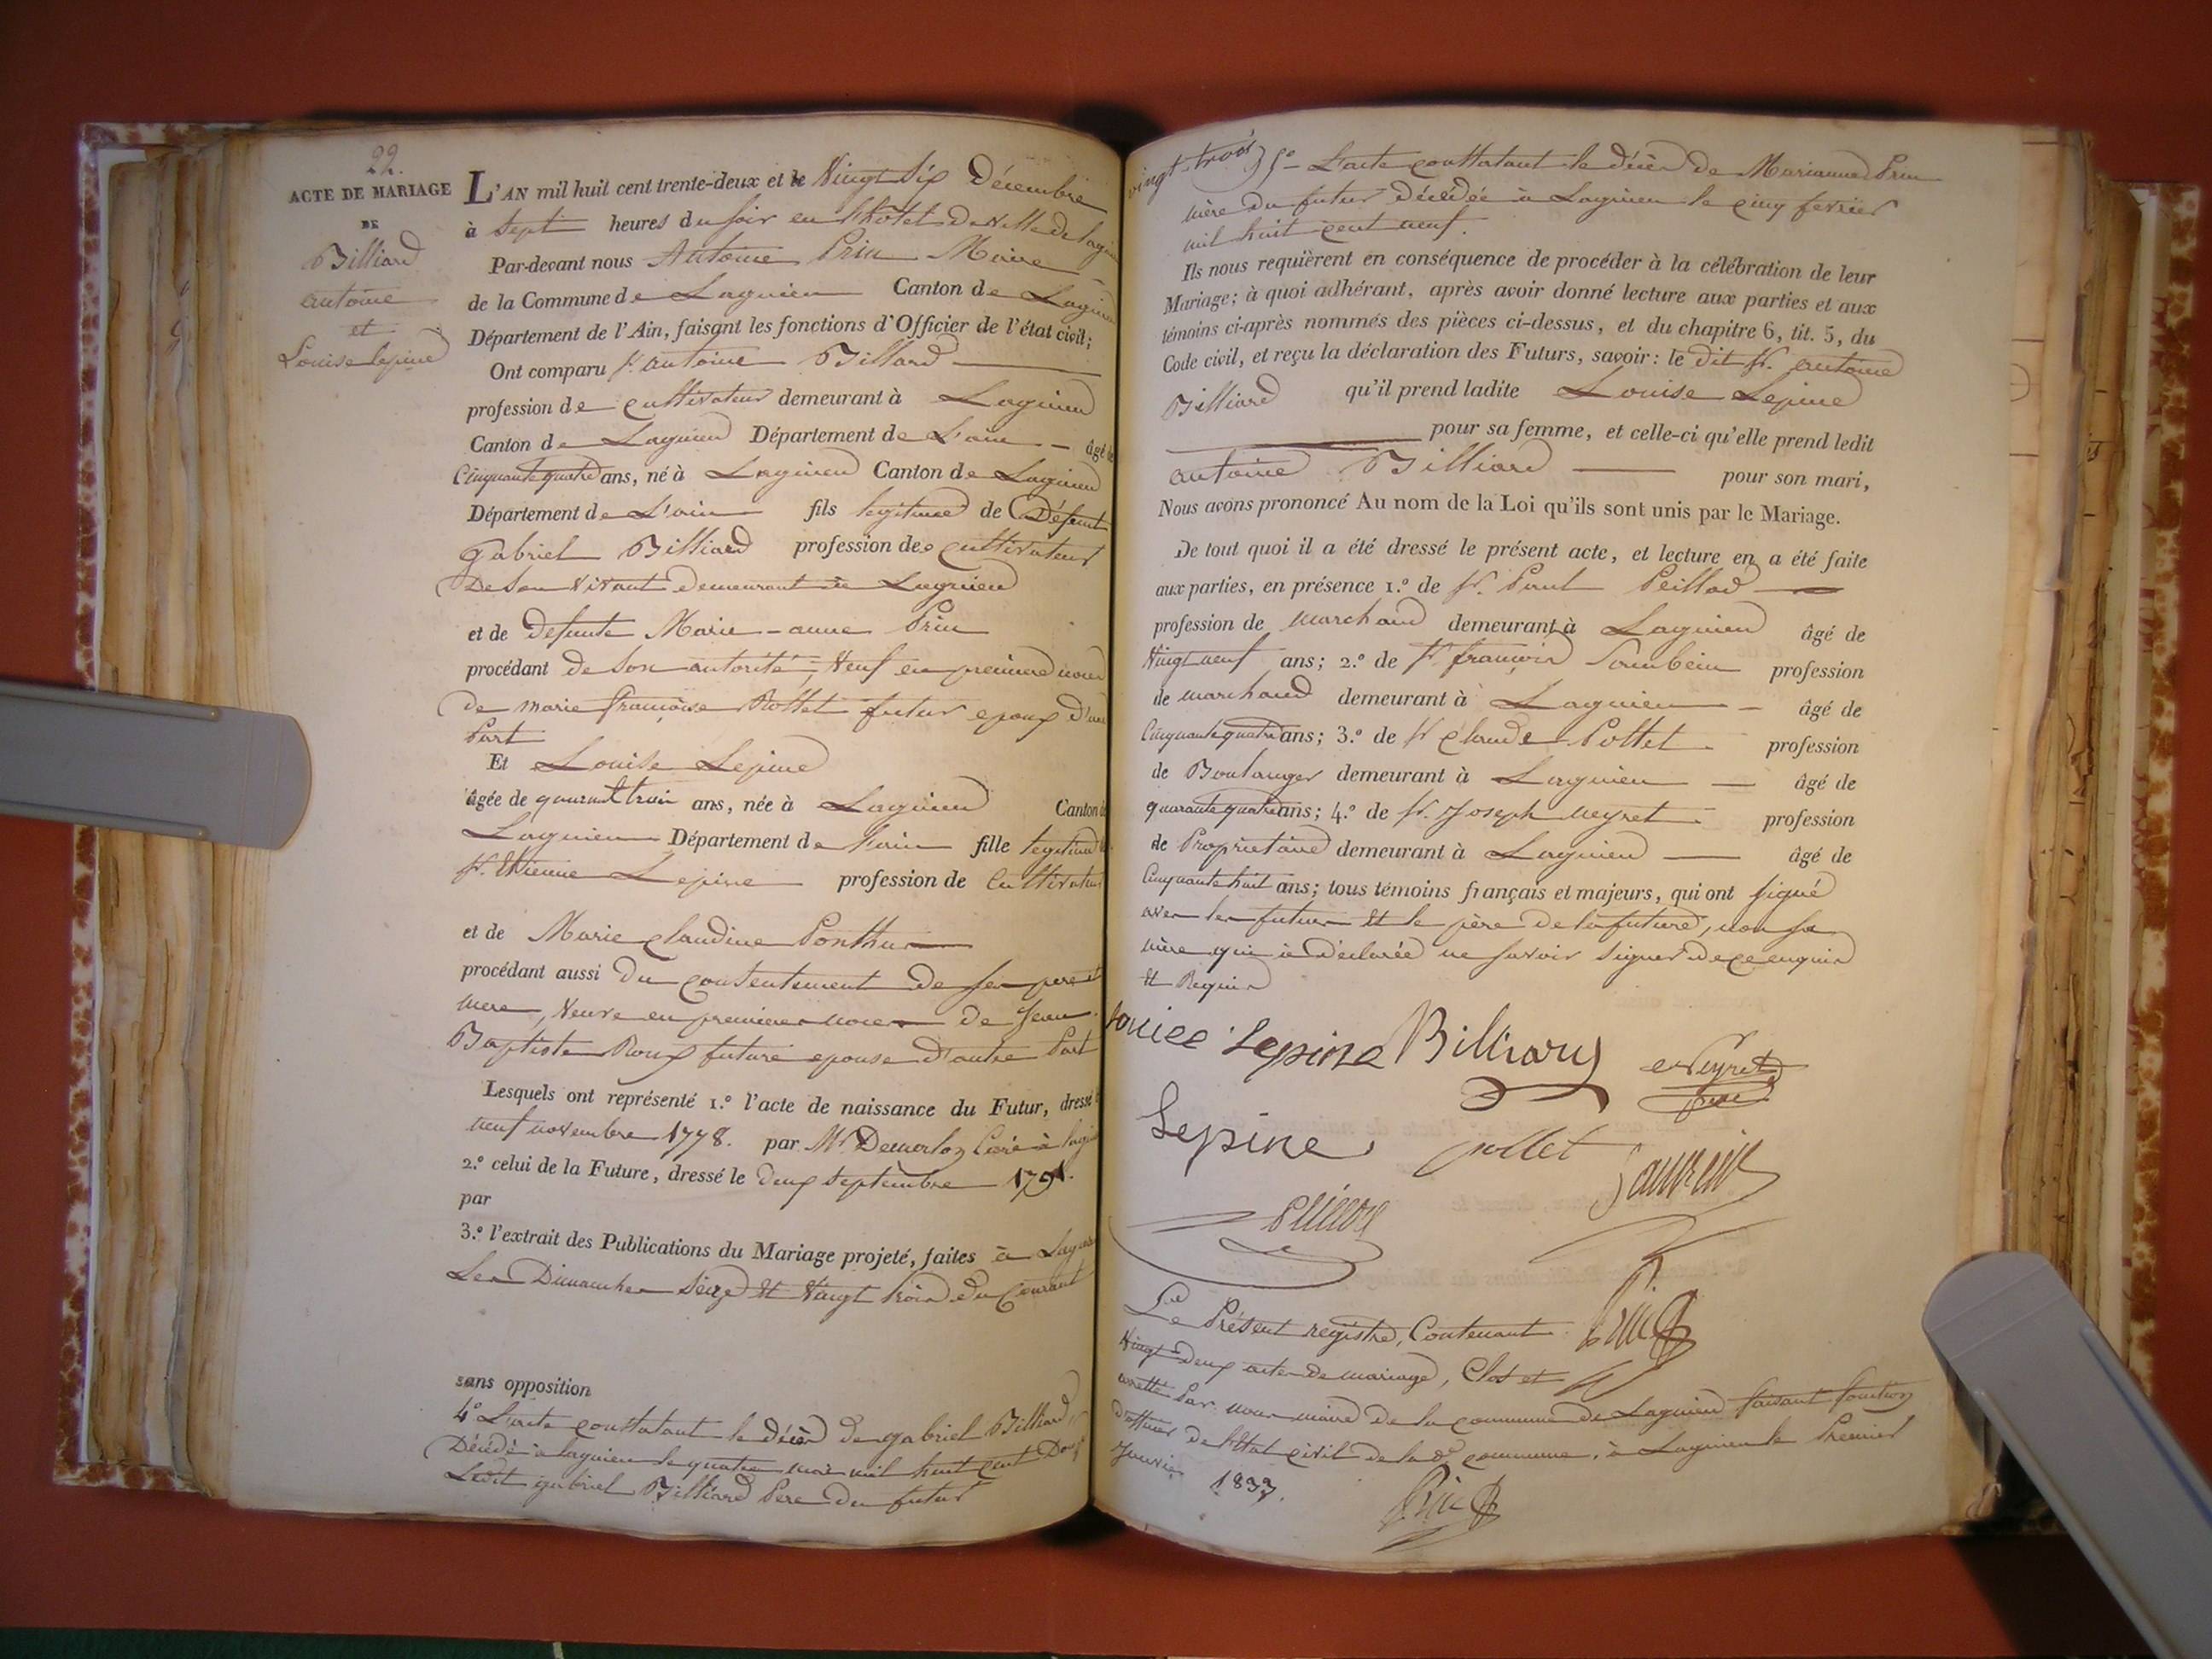 22.
ACTE DE MARIAGE
DE
Billiard
antoine
et
Louise Lepine
L'AN mil huit cent trente-deux et le Vingt Six Décembre
à Sept heures du soir en l'hôtel de Ville de Lagnieu
Par-devant nous Antoine Prin Maire
de la Commune de Lagnieu Canton de Lagnieu
Département de l'Ain, faisant les fonctions d'Officier de l'état civil;
Ont comparu sr. antoine Billard
profession de cultivateur demeurant à Lagnieu
Canton de Lagnieu Département de L'ain âgé de
Cinquante quatre ans, né à Lagnieu Canton de Lagnieu
Département de L'ain fils legitime de Défunt
gabriel Billiard profession de cultivateur
De Son Vivant demeurant à Lagnieu
et de defunte Marie-anne Prin
procédant de Son autorité, Veuf en premiere noce
de marie françoise Rottet futur epoux d'une
Part
Et Louise Lepine
âgée de quarante trois ans, née à Lagnieu Canton de
Lagnieu Département de l'ain fille legitime de
sr. Etienne Lepine profession de Cultivateur
et de Marie claudine Ponthus
procédant aussi du consentement de ses pere et
mere, Veuve en premieres noces de Jean
Baptiste Roux future epouse d'autre Part
Lesquels ont représenté 1.º l'acte de naissance du Futur, dressé le
neuf novembre 1778. par Mr. Curé à
2.º celui de la Future, dressé le deux septembre 1791.
par
3.º l'extrait des Publications du Mariage projeté, faites à Lagnieu
Les Dimanches Seize et Vingt trois du Courant
sans opposition
4º L'acte constatant le décès de gabriel Billiard
Décédé à lagnieu le quatre mai mil huit cent
Ledit gabriel Billiard Pere du futur
vingt-trois 5º L'acte constatant le décès de Marianne Prin
mère du futur décédée à Lagnieu le cinq fevrier
mil huit cent neuf.
Ils nous requièrent en conséquence de procéder à la célébration de leur
Mariage; à quoi adhérant, après avoir donné lecture aux parties et aux
témoins ci-après nommés des pièces ci-dessus, et du chapitre 6, tit. 5, du
Code civil, et reçu la déclaration des Futurs, savoir: le dit sr. antoine
Billiard qu'il prend ladite Louise Lepine
pour sa femme, et celle-ci qu'elle prend ledit
antoine Billiard pour son mari,
Nous avons prononcé Au nom de la Loi qu'ils sont unis par le Mariage.
De tout quoi il a été dressé le présent acte, et lecture en a été faite
aux parties, en présence 1.º de sr. Paul Peillod
profession de marchand demeurant à Lagnieu âgé de
Vingt neuf ans; 2.º de sr françois profession
de marchand demeurant à Lagnieu âgé de
Cinquante quatre ans; 3.º de sr claude Pottet profession
de Boulanger demeurant à Lagnieu âgé de
quarante quatre ans; 4.º de sr. Joseph neyret profession
de Proprietaire demeurant à Lagnieu âgé de
Cinquante huit ans; tous témoins français et majeurs, qui ont signé
avec les futurs et le père de la future, non sa
mère qui a déclarée ne savoir signer de ce enquis
et Requis
Louise Lepine Billiard Neyret
Lepine pollet
Le Présent registre, Contenant Prin
Vingt-deux actes de mariage, Clos et
arretté Par nous maire de la commune de Lagnieu faisant fonction
d'officier de l'Etat civil de la de commune, à Lagnieu le Premier
Janvier 1833.
Prin